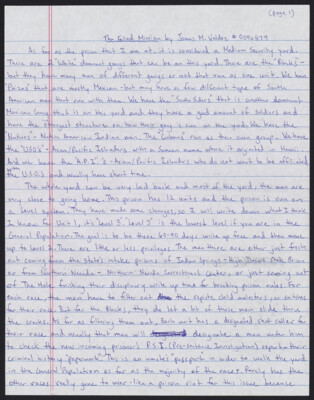 (page 1)
The Good Mission by James M. Valdez, # 0090879
As far as the prison that I am at, it is considered a Medium Security yard.
There are 2 "White" dominant gangs that can be on this yard. There are the "Blacks" -
but they have many men of different gangs or not that run as one unit. We have
Paisas that are mostly Mexican - but may have a few different types of South
American men that run with them. We have the "South Siders" that is another dominant
Mexican Gang that is on this yard and they have a good amount of Soldiers and
have the strongest structure on how their gang is run on the yard. We have the
Natives" - Native American Indian men. The "Cubans" run as their own group. We have
the "USO's" - Asian/Pacific Islanders with a Samoan name where it originated in Hawaii.
And we have the "A.P.I." 's - Asian/Pacific Islanders who do not want to be affiliated
U.S.O.'s and usually have short time.
This whole yard can be very laid back and most of the yard, the men are
very close to going home. This prison has 12 units and the prison is run on
a level system. They have made some changes, so I will write down what I think
is known for Unit 1, it's level 3. Level 3 is the lowest level if you are in the
General Population. The goal is to be there 60-90 days write up free, and then move
up to level 2. There are little or less privileges. The men there are either just fresh
out coming from the State's intake prisons of Indian Springs - High Desert State Prison
or from Northern Nevada - Northern Nevada Correctional Center, or just coming out
of The Hole for their disciplinary write up time for breaking prison rules. For
each race, the men have to filter out the rapists, child molesters, or snitches
for their race. But for the Blacks, they do let a lot of those men slide thru
the cracks. As far as filtering them out, each unit has a designated shot caller for
their race and usually that man will designate a man under him
to check the new incoming prisoner's P.S.I. (Pre-Sentence Investigation) report on their
criminal history "paperwork". This is an inmate's "passport" in order to walk the yard
in the General Population as far as the majority of the races. Rarely has the
other races really gone to war - like a prison riot for this issue because